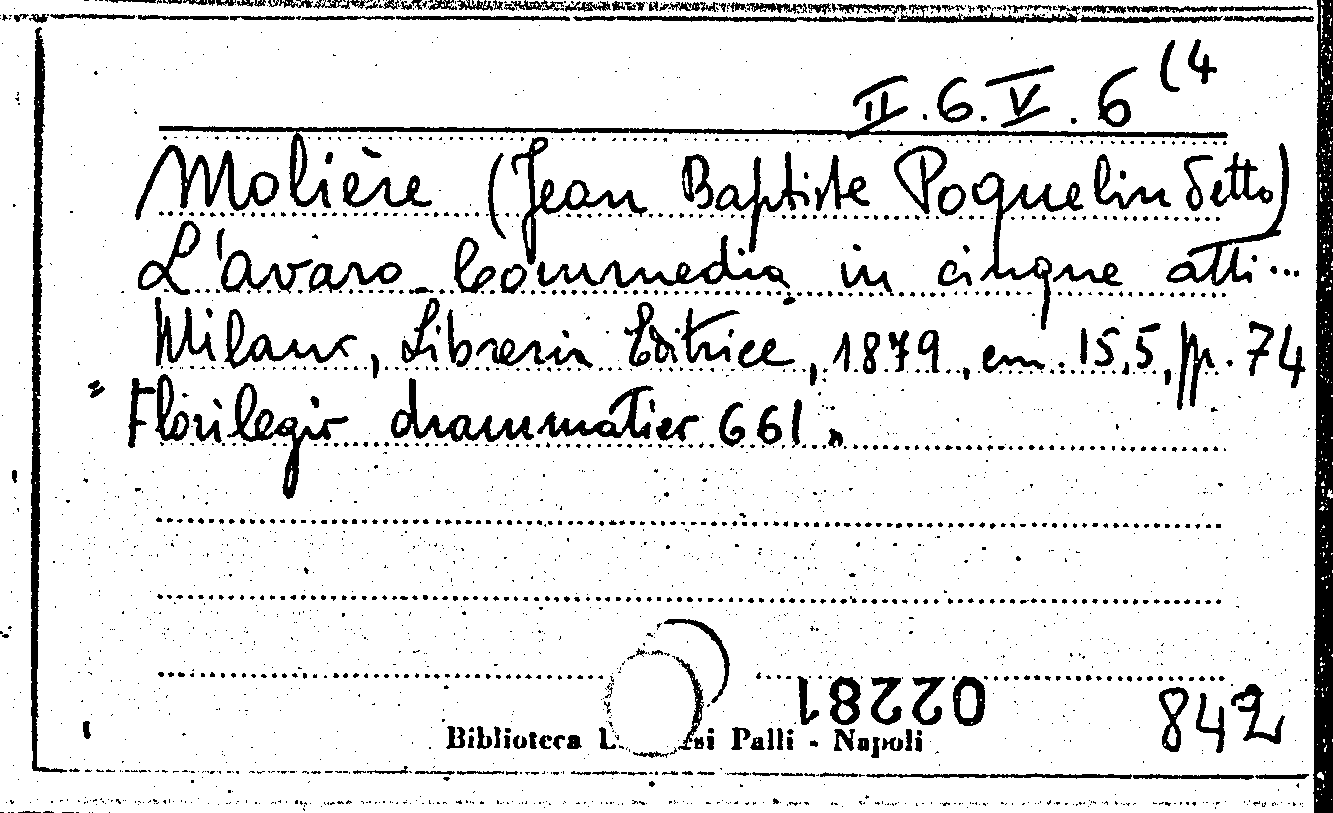 II.6.V.6(4
Molière (Jean Baptiste Poquelin detto)
L'avaro. Commedia in cinque atti...
Milano, Libreria Editrice, 1879, cm. 15,5, pp. 74
"Florilegio drammatico 661"
02281
842
Biblioteca L si Palli - Napoli